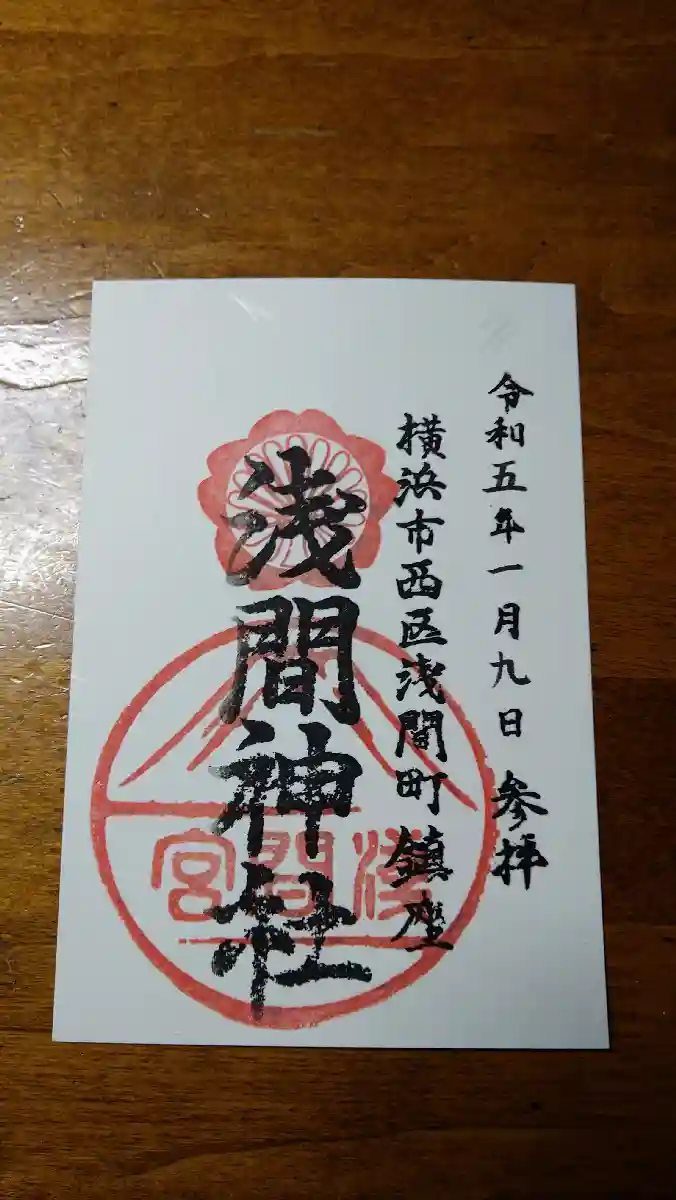 令和五年一月九日 参拝
横浜市西区浅間町鎮座
浅間神社
浅間宮